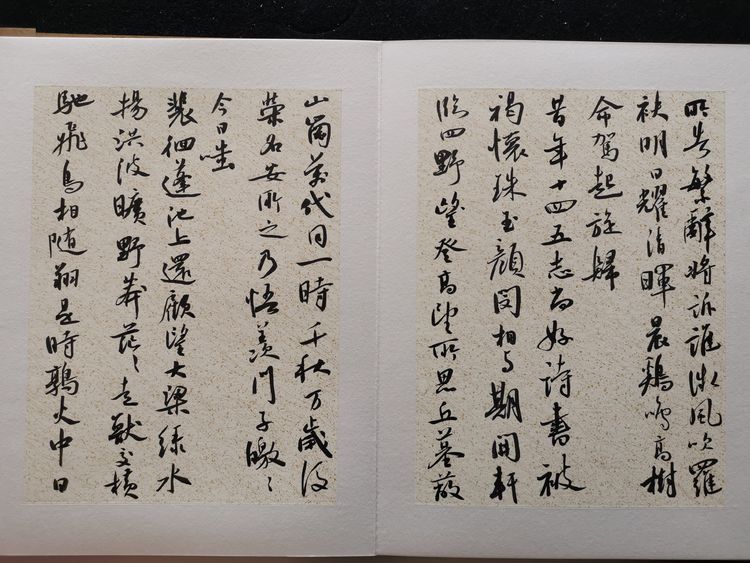 所告繁辭將訴誰微風吹羅
袂明月耀清暉晨鷄鳴高樹
命駕起旋歸
昔年十四五志尚好詩書被
褐懷珠玉顏閔相与期開軒
臨四野望登高望所思丘墓蔽
山崗萬代同一時千秋万歲後
榮名安所之乃悟羨門子噭〻
今自嗤
裴徊蓬池上還顧望大梁綠水
揚洪波曠野莽茫〻走獸交橫
馳飛鳥相随翔是時鶉火中日